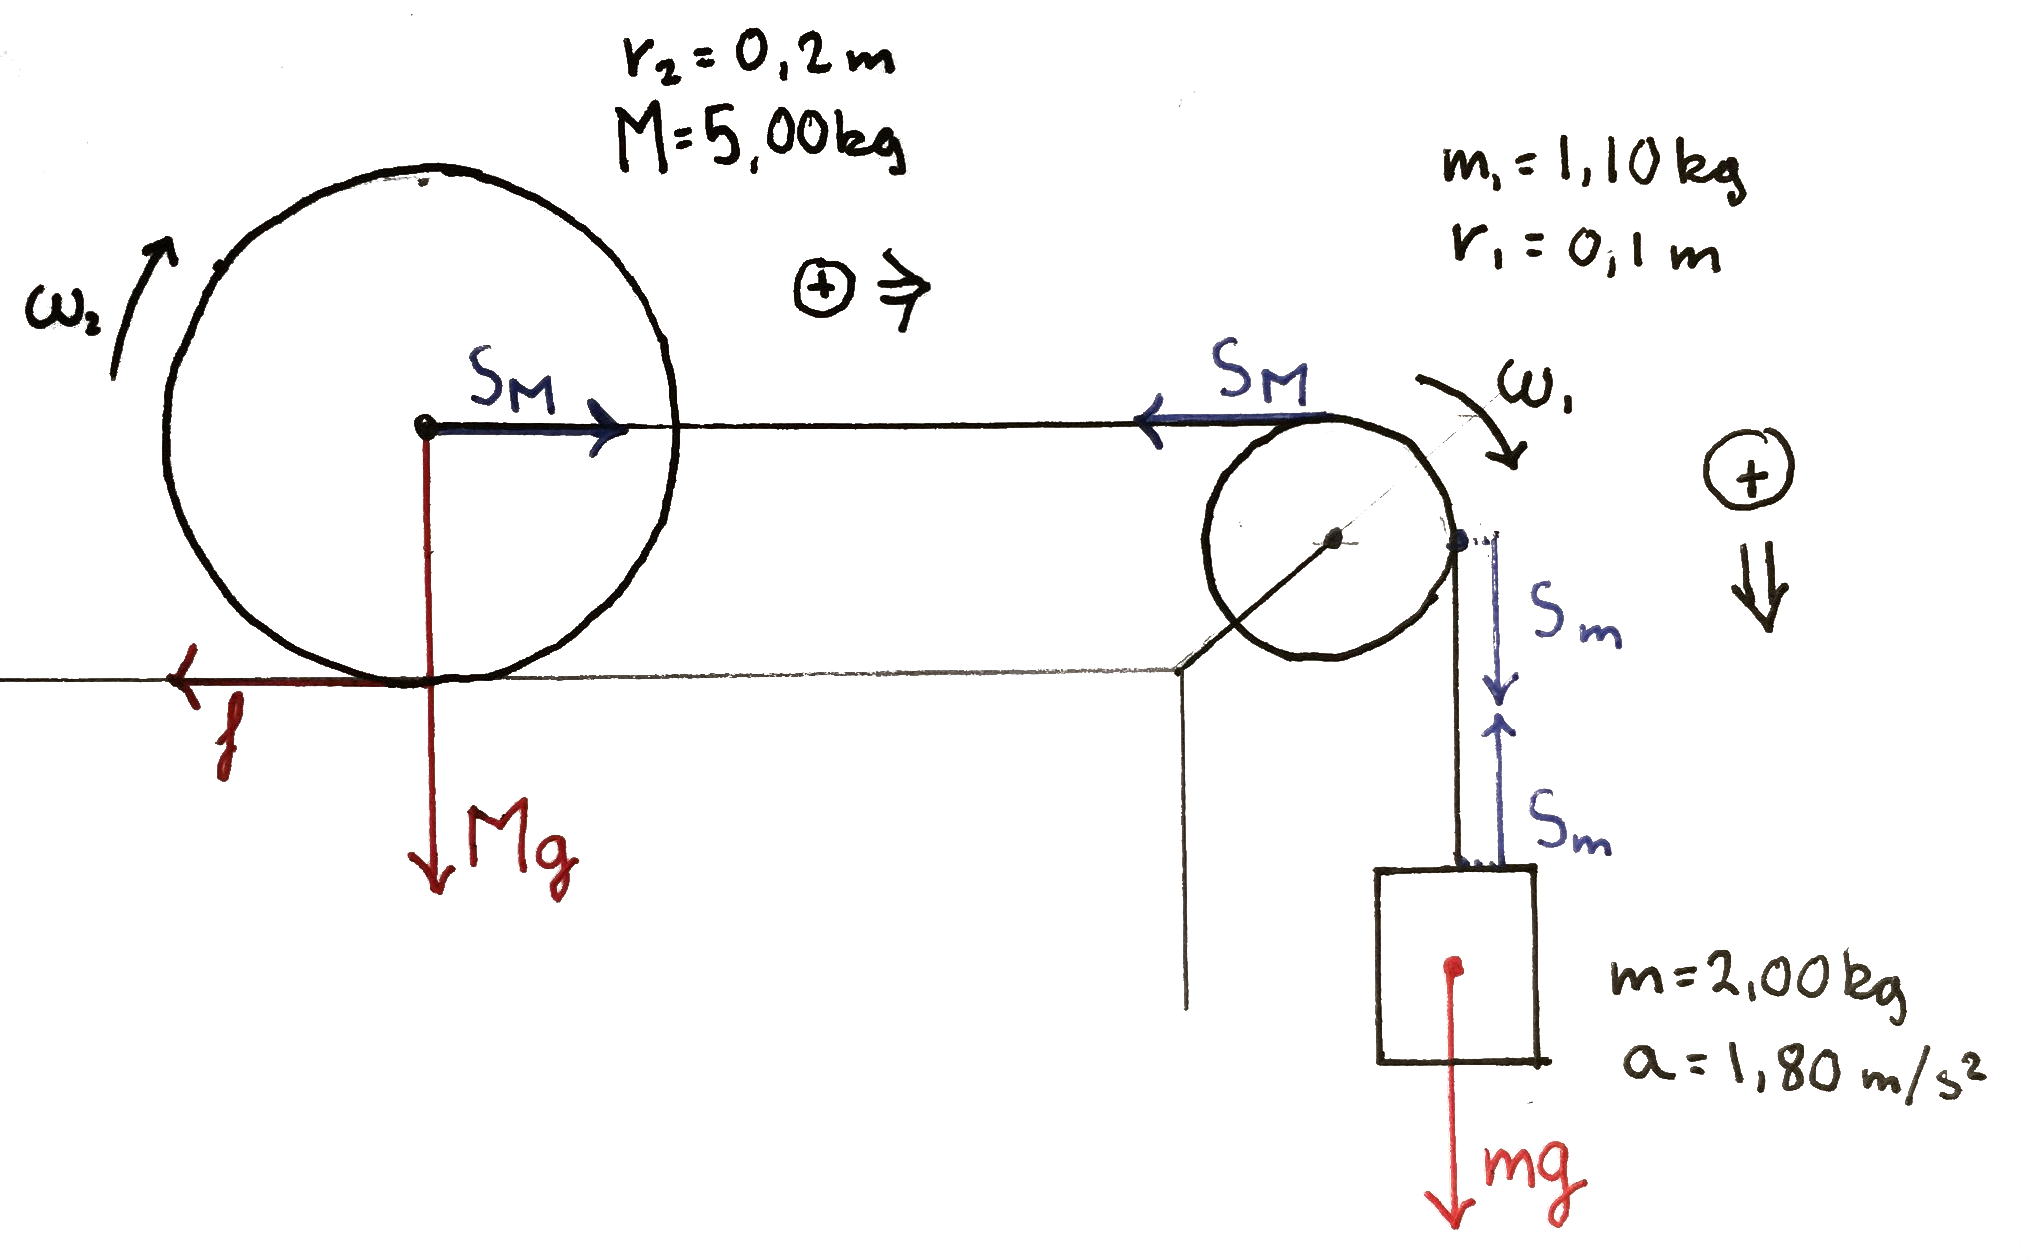 r₂ = 0,2 m
M = 5,00 kg
m₁ = 1,10 kg
r₁ = 0,1 m
ω₂
+
S_M
S_M
ω₁
+
S_m
f
Mg
S_m
m = 2,00 kg
a = 1,80 m/s²
mg